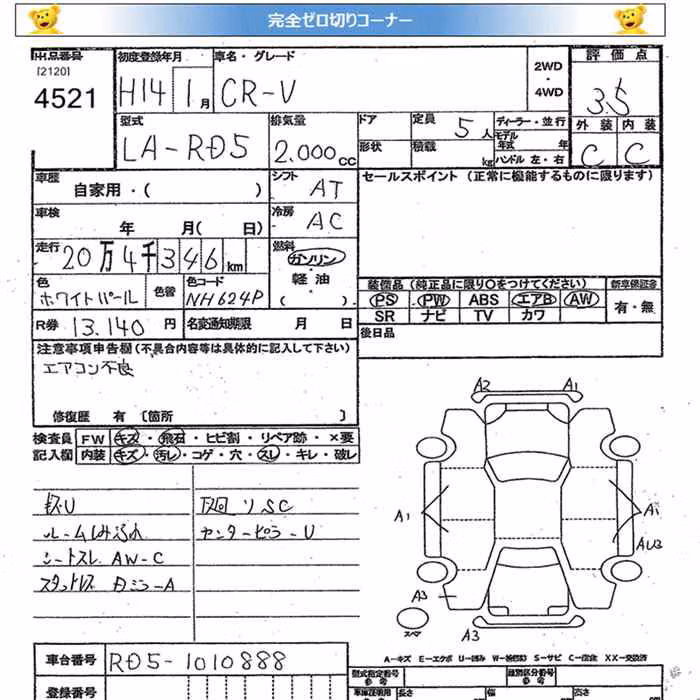 完全ゼロ切りコーナー
出品番号 初度登録年月 車名・グレード 評価点
[2120]
4521 H14 1月 CR-V 2WD・4WD 3.5
型式 排気量 ドア 定員 5人 ディーラー・並行 外装 内装
LA-RD5 2.000cc 形状 積載 kg モデル年式 年 C C
ハンドル 左・右
車歴 自家用・( ) シフト AT セールスポイント(正常に機能するものに限ります)
車検 年 月(日) 冷房 AC
走行 20万4千346km 燃料 ガソリン・軽油・( )
色 ホワイトパール 色替 色コード NH624P 装備品(純正品に限り○をつけてください) 新車保証書
PS PW ABS エアB AW 有・無
SR ナビ TV カワ
R券 13.140円 名変通知期限 月 日 後日品
注意事項申告欄(不具合内容等は具体的に記入して下さい)
エアコン不良
修復歴 有 [箇所 ]
検査員 FW キズ・飛石・ヒビ割・リペア跡・×要
記入欄 内装 キズ・汚レ・コゲ・穴・スレ・キレ・破レ
A2 A1
下回りSC
ルーム センターピラーU
シートスレ AW-C
スタットレス Dミラ-A
A1 A1
AU3
A3
スペア
A3
A-キズ E-エクボ U-凹み W-補修跡 S-サビ C-腐食 XX-交換済
車台番号 RD5-1010888 型式指定番号 類別区分番号
参考 参考
登録番号 車庫証明用 長さ 幅 高さ